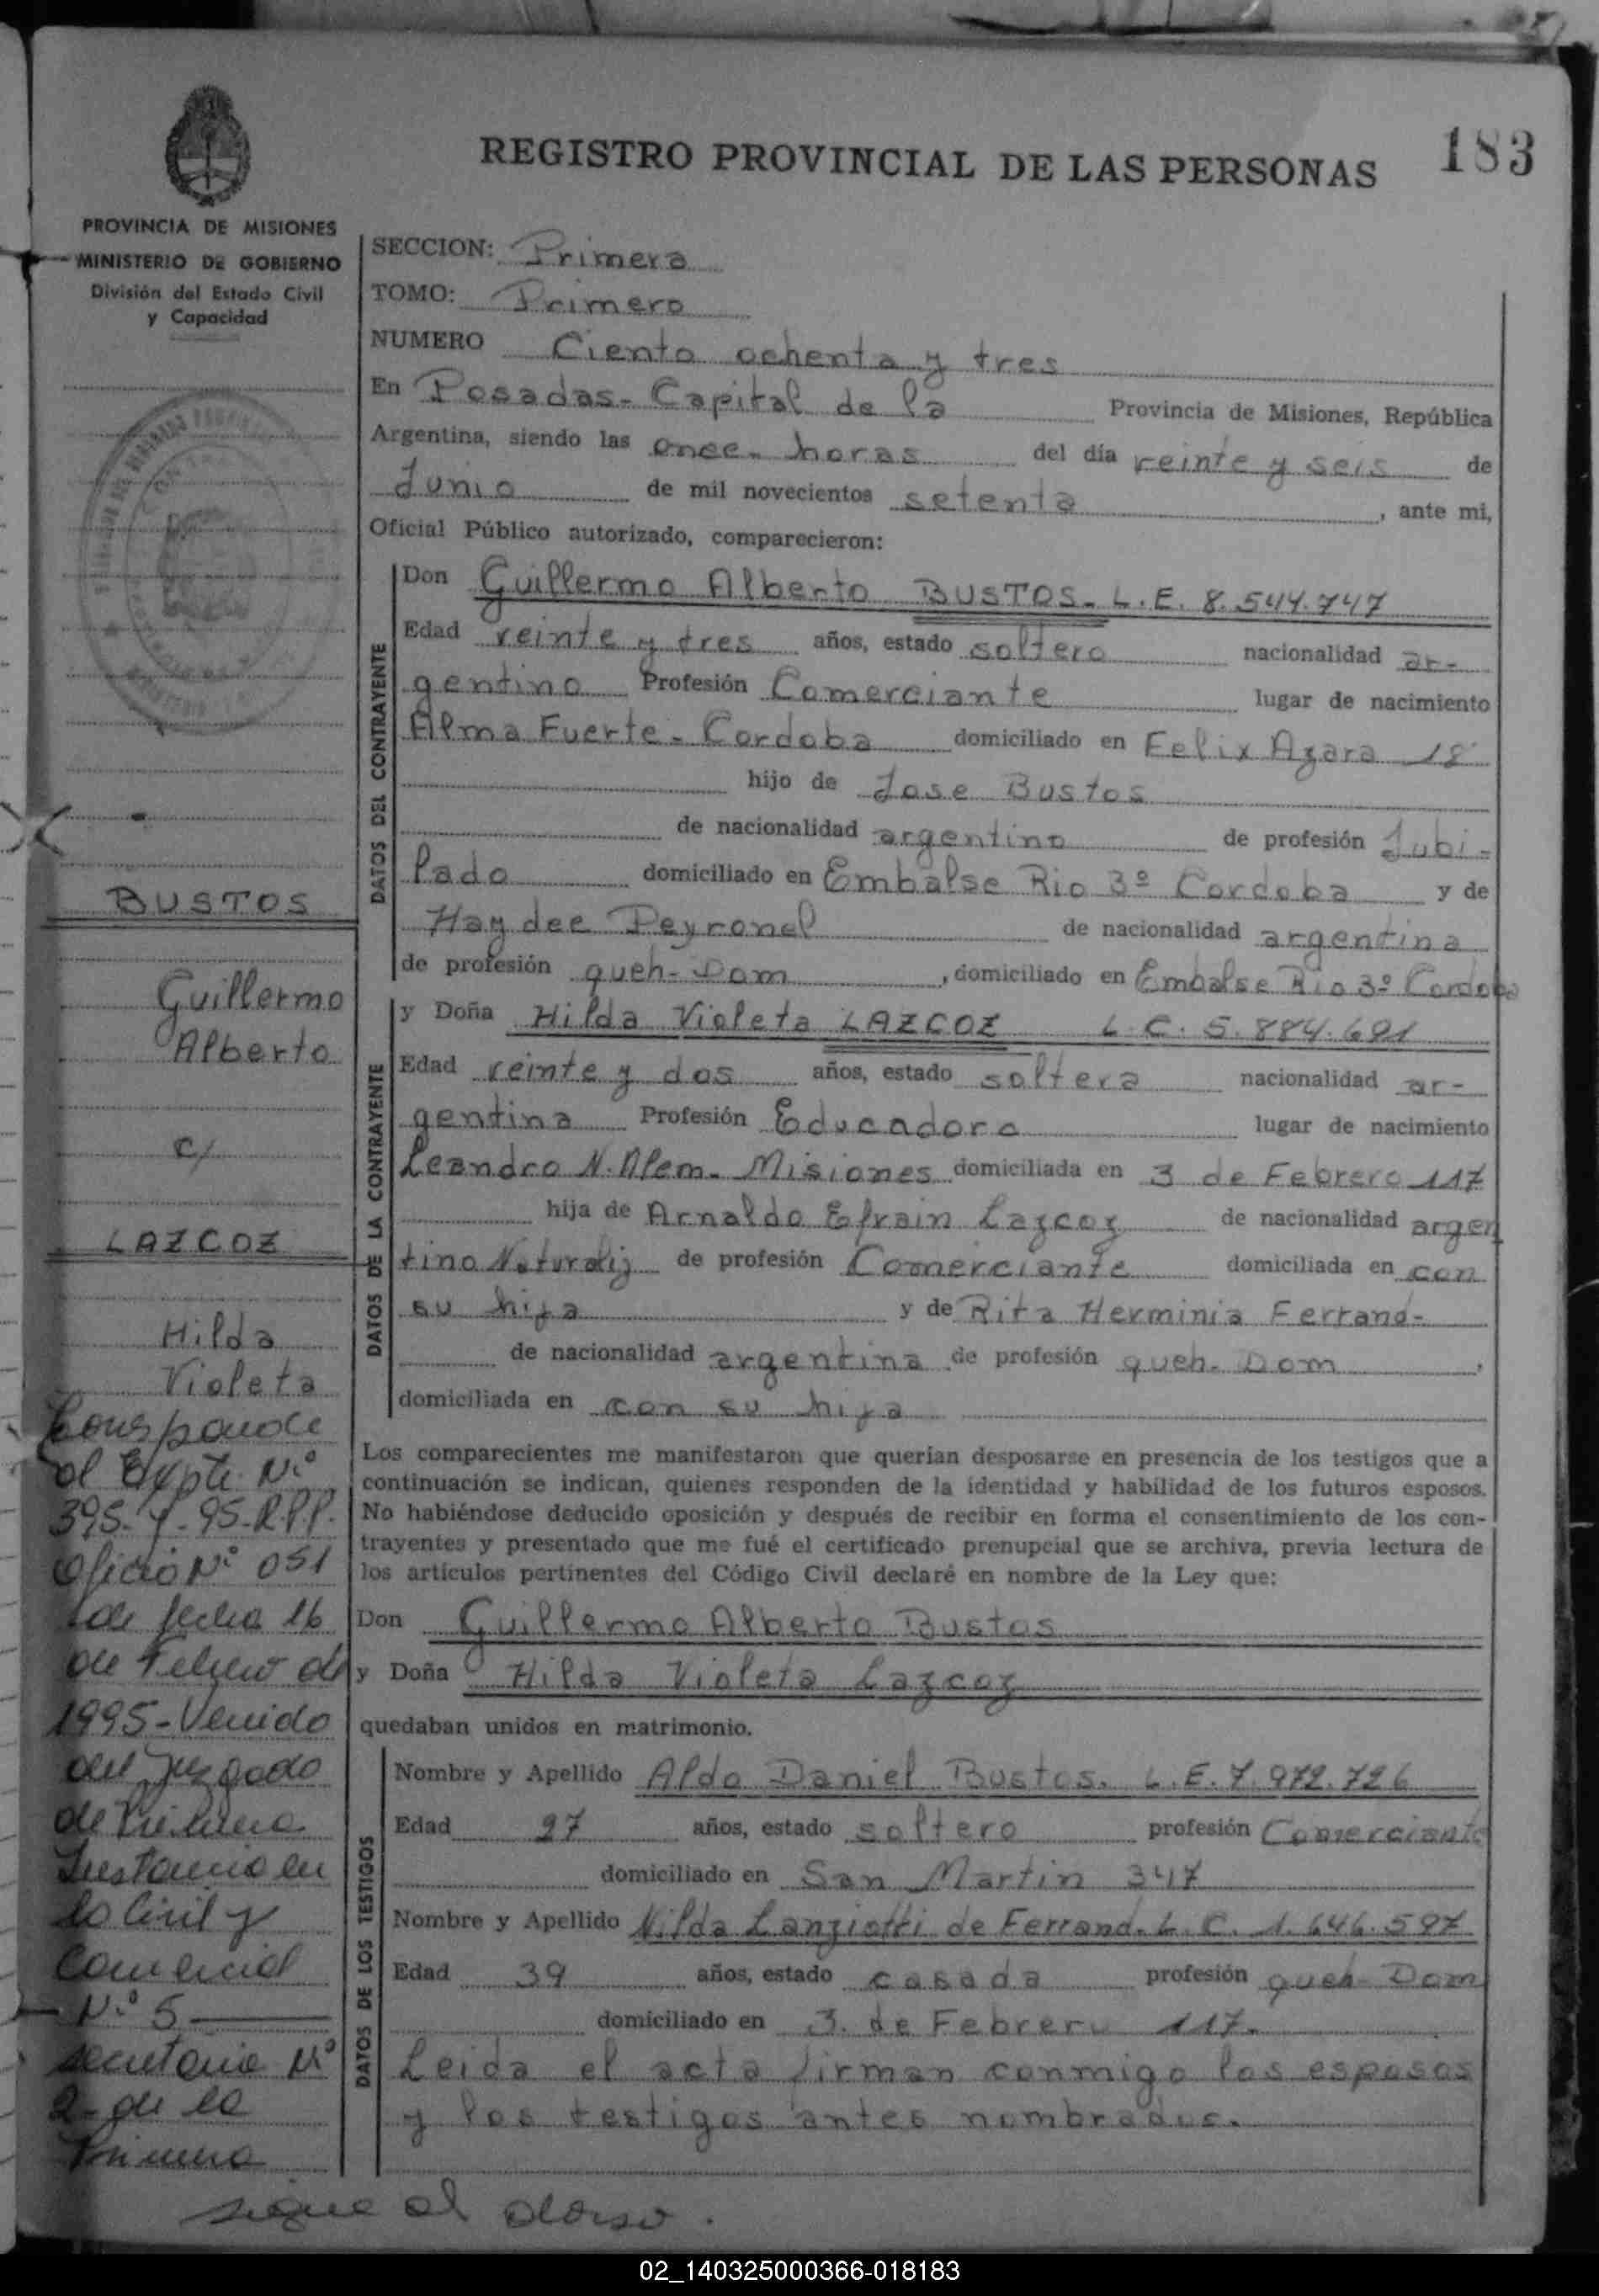 REGISTRO PROVINCIAL DE LAS PERSONAS
183
PROVINCIA DE MISIONES
MINISTERIO DE GOBIERNO
División del Estado Civil
y Capacidad
SECCION: Primera
TOMO: Primero
NUMERO Ciento ochenta y tres
En Posadas - Capital de la Provincia de Misiones, República
Argentina, siendo las once - horas del día veinte y seis de
Junio de mil novecientos setenta, ante mi,
Oficial Público autorizado, comparecieron:
DATOS DEL CONTRAYENTE
Don Guillermo Alberto BUSTOS - L.E. 8.544.747
Edad veinte y tres años, estado soltero nacionalidad ar-
gentino Profesión Comerciante lugar de nacimiento
Alma Fuerte - Cordoba domiciliado en Felix Azara 18
hijo de Jose Bustos
de nacionalidad argentino de profesión Jubi-
lado domiciliado en Embalse Rio 3º Cordoba y de
Haydee Peyronel de nacionalidad argentina
de profesión queh - Dom, domiciliado en Embalse Rio 3º Cordoba
DATOS DE LA CONTRAYENTE
y Doña Hilda Violeta LAZCOZ L.C. 5.884.691
Edad veinte y dos años, estado soltera nacionalidad ar-
gentina Profesión Educadora lugar de nacimiento
Leandro N. Alem - Misiones domiciliada en 3 de Febrero 117
hija de Arnaldo Efrain Lazcoz de nacionalidad argen
tino Naturaliz de profesión Comerciante domiciliada en con
su hija y de Rita Herminia Ferrand -
de nacionalidad argentina de profesión queh - Dom,
domiciliada en con su hija
Los comparecientes me manifestaron que querían desposarse en presencia de los testigos que a
continuación se indican, quienes responden de la identidad y habilidad de los futuros esposos.
No habiéndose deducido oposición y después de recibir en forma el consentimiento de los con-
trayentes y presentado que me fué el certificado prenupcial que se archiva, previa lectura de
los artículos pertinentes del Código Civil declaré en nombre de la Ley que:
Don Guillermo Alberto Bustos
y Doña Hilda Violeta Lazcoz
quedaban unidos en matrimonio.
DATOS DE LOS TESTIGOS
Nombre y Apellido Aldo Daniel Bustos. L.E. 7.972.726
Edad 27 años, estado soltero profesión Comerciante
domiciliado en San Martin 347
Nombre y Apellido Nilda Lanziotti de Ferrand - L.C. 1.646.597
Edad 39 años, estado casada profesión queh - Dom
domiciliado en 3 de Febrero 117.
Leida el acta firman conmigo los esposos
y los testigos antes nombrados.
BUSTOS
Guillermo
Alberto
c/
LAZCOZ
Hilda
Violeta
Corresponde
al Expte. Nº
395-f-95-R.P.P.
Oficio Nº 051
de fecha 16
de Febrero de
1995 - Venido
del Juzgado
de Primera
Instancia en
lo Civil y
Comercial
Nº 5
secretaria Nº
2 - de la
Primera
sigue al dorso.
02_140325000366-018183